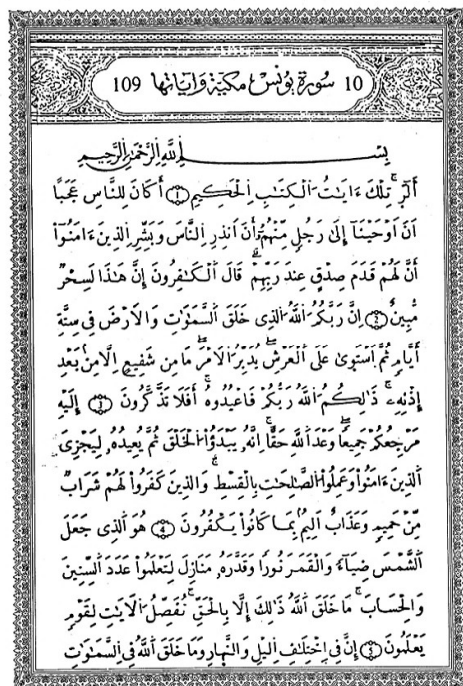 10 سُورَةُ يُونُسَ مَكِّيَّة وَءَايَاتُهَا 109
بِسْمِ اِللَّهِ اِلرَّحْمَٰنِ اِلرَّحِيمِ
أَلَٓرۖ تِلْكَ ءَايَٰتُ اُلْكِتَٰبِ اِلْحَكِيمِ ۝ أَكَانَ لِلنَّاسِ عَجَبًا
اَنَ اَوْحَيْنَآ إِلَىٰ رَجُلٍ مِّنْهُمُۥٓ أَنَ اَنذِرِ اِلنَّاسَ وَبَشِّرِ اِلذِينَ ءَامَنُوٓاْ
أَنَّ لَهُمْ قَدَمَ صِدْقٍ عِندَ رَبِّهِمْۖ قَالَ اَلْكَٰفِرُونَ إِنَّ هَٰذَا لَسِحْرٌ
مُّبِينٌ ۝ اِنَّ رَبَّكُمُ اُللَّهُ اُلذِى خَلَقَ اَلسَّمَٰوَٰتِ وَالَارْضَ فِى سِتَّةِ
أَيَّامٍ ثُمَّ اَسْتَوَىٰ عَلَى اَلْعَرْشِۖ يُدَبِّرُ اُلَامْرَۖ مَا مِن شَفِيعٍ اِلَّا مِنۢ بَعْدِ
إِذْنِهِۦۖ ذَٰلِكُمُ اُللَّهُ رَبُّكُمْ فَاعْبُدُوهُۖ أَفَلَا تَذَّكَّرُونَ ۝ إِلَيْهِ
مَرْجِعُكُمْ جَمِيعًاۖ وَعْدَ اَللَّهِ حَقًّاۖ اِنَّهُۥ يَبْدَؤُاْ اُلْخَلْقَ ثُمَّ يُعِيدُهُۥ لِيَجْزِىَ
اَلذِينَ ءَامَنُواْ وَعَمِلُواْ اُلصَّٰلِحَٰتِ بِالْقِسْطِۖ وَالذِينَ كَفَرُواْ لَهُمْ شَرَابٌ
مِّنْ حَمِيمٍ وَعَذَابٌ اَلِيمٌۢ بِمَا كَانُواْ يَكْفُرُونَ ۝ هُوَ اَلذِى جَعَلَ
اَلشَّمْسَ ضِيَآءً وَالْقَمَرَ نُورًا وَقَدَّرَهُۥ مَنَازِلَ لِتَعْلَمُواْ عَدَدَ اَلسِّنِينَ
وَالْحِسَابَۖ مَا خَلَقَ اَللَّهُ ذَٰلِكَ إِلَّا بِالْحَقِّۖ نُفَصِّلُ اُلَايَٰتِ لِقَوْمٍ
يَعْلَمُونَ ۝ إِنَّ فِى اِخْتِلَٰفِ اِليْلِ وَالنَّهارِ وَمَا خَلَقَ اَللَّهُ فِى اِلسَّمَٰوَٰتِ